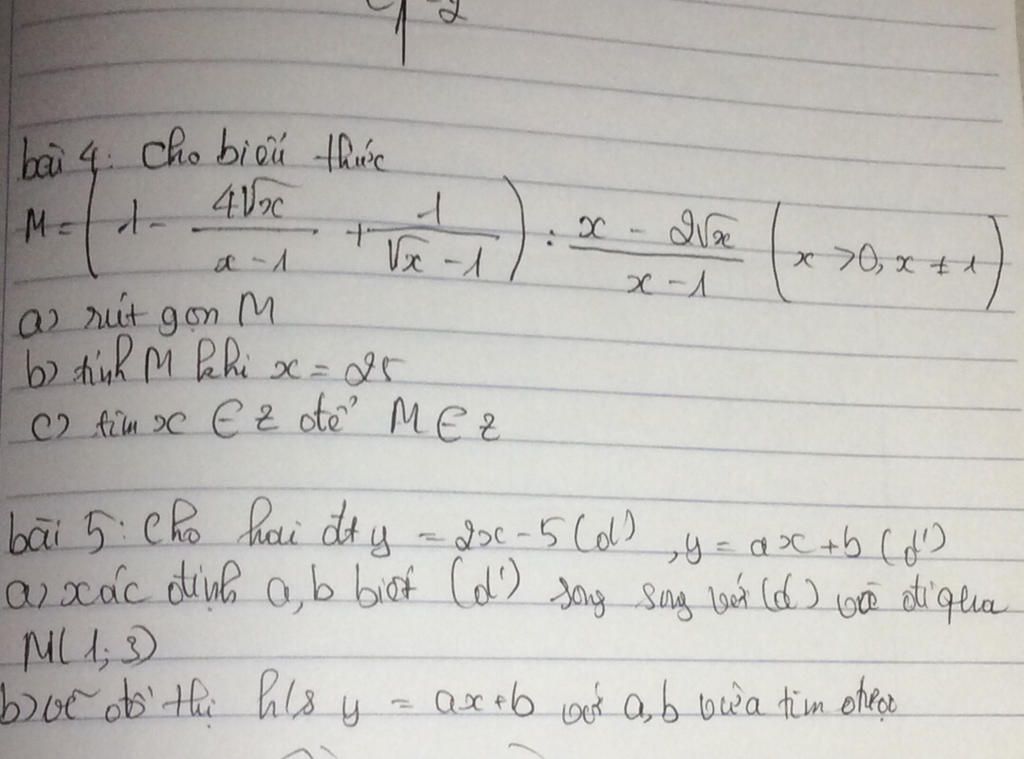 2
bài 4: Cho biểu thức
M = (1 - 4√x / x - 1 + 1 / √x - 1) : x - 2√x / x - 1 (x > 0, x ≠ 1)
a) rút gọn M
b) tính M khi x = 25
c) tìm x ∈ Z để M ∈ Z
bài 5: Cho hai đt y = 2x - 5 (d), y = ax + b (d')
a) xác định a, b biết (d') song song với (d) và đi qua
M(1; 3)
b) vẽ đồ thị h/s y = ax + b với a, b vừa tìm được